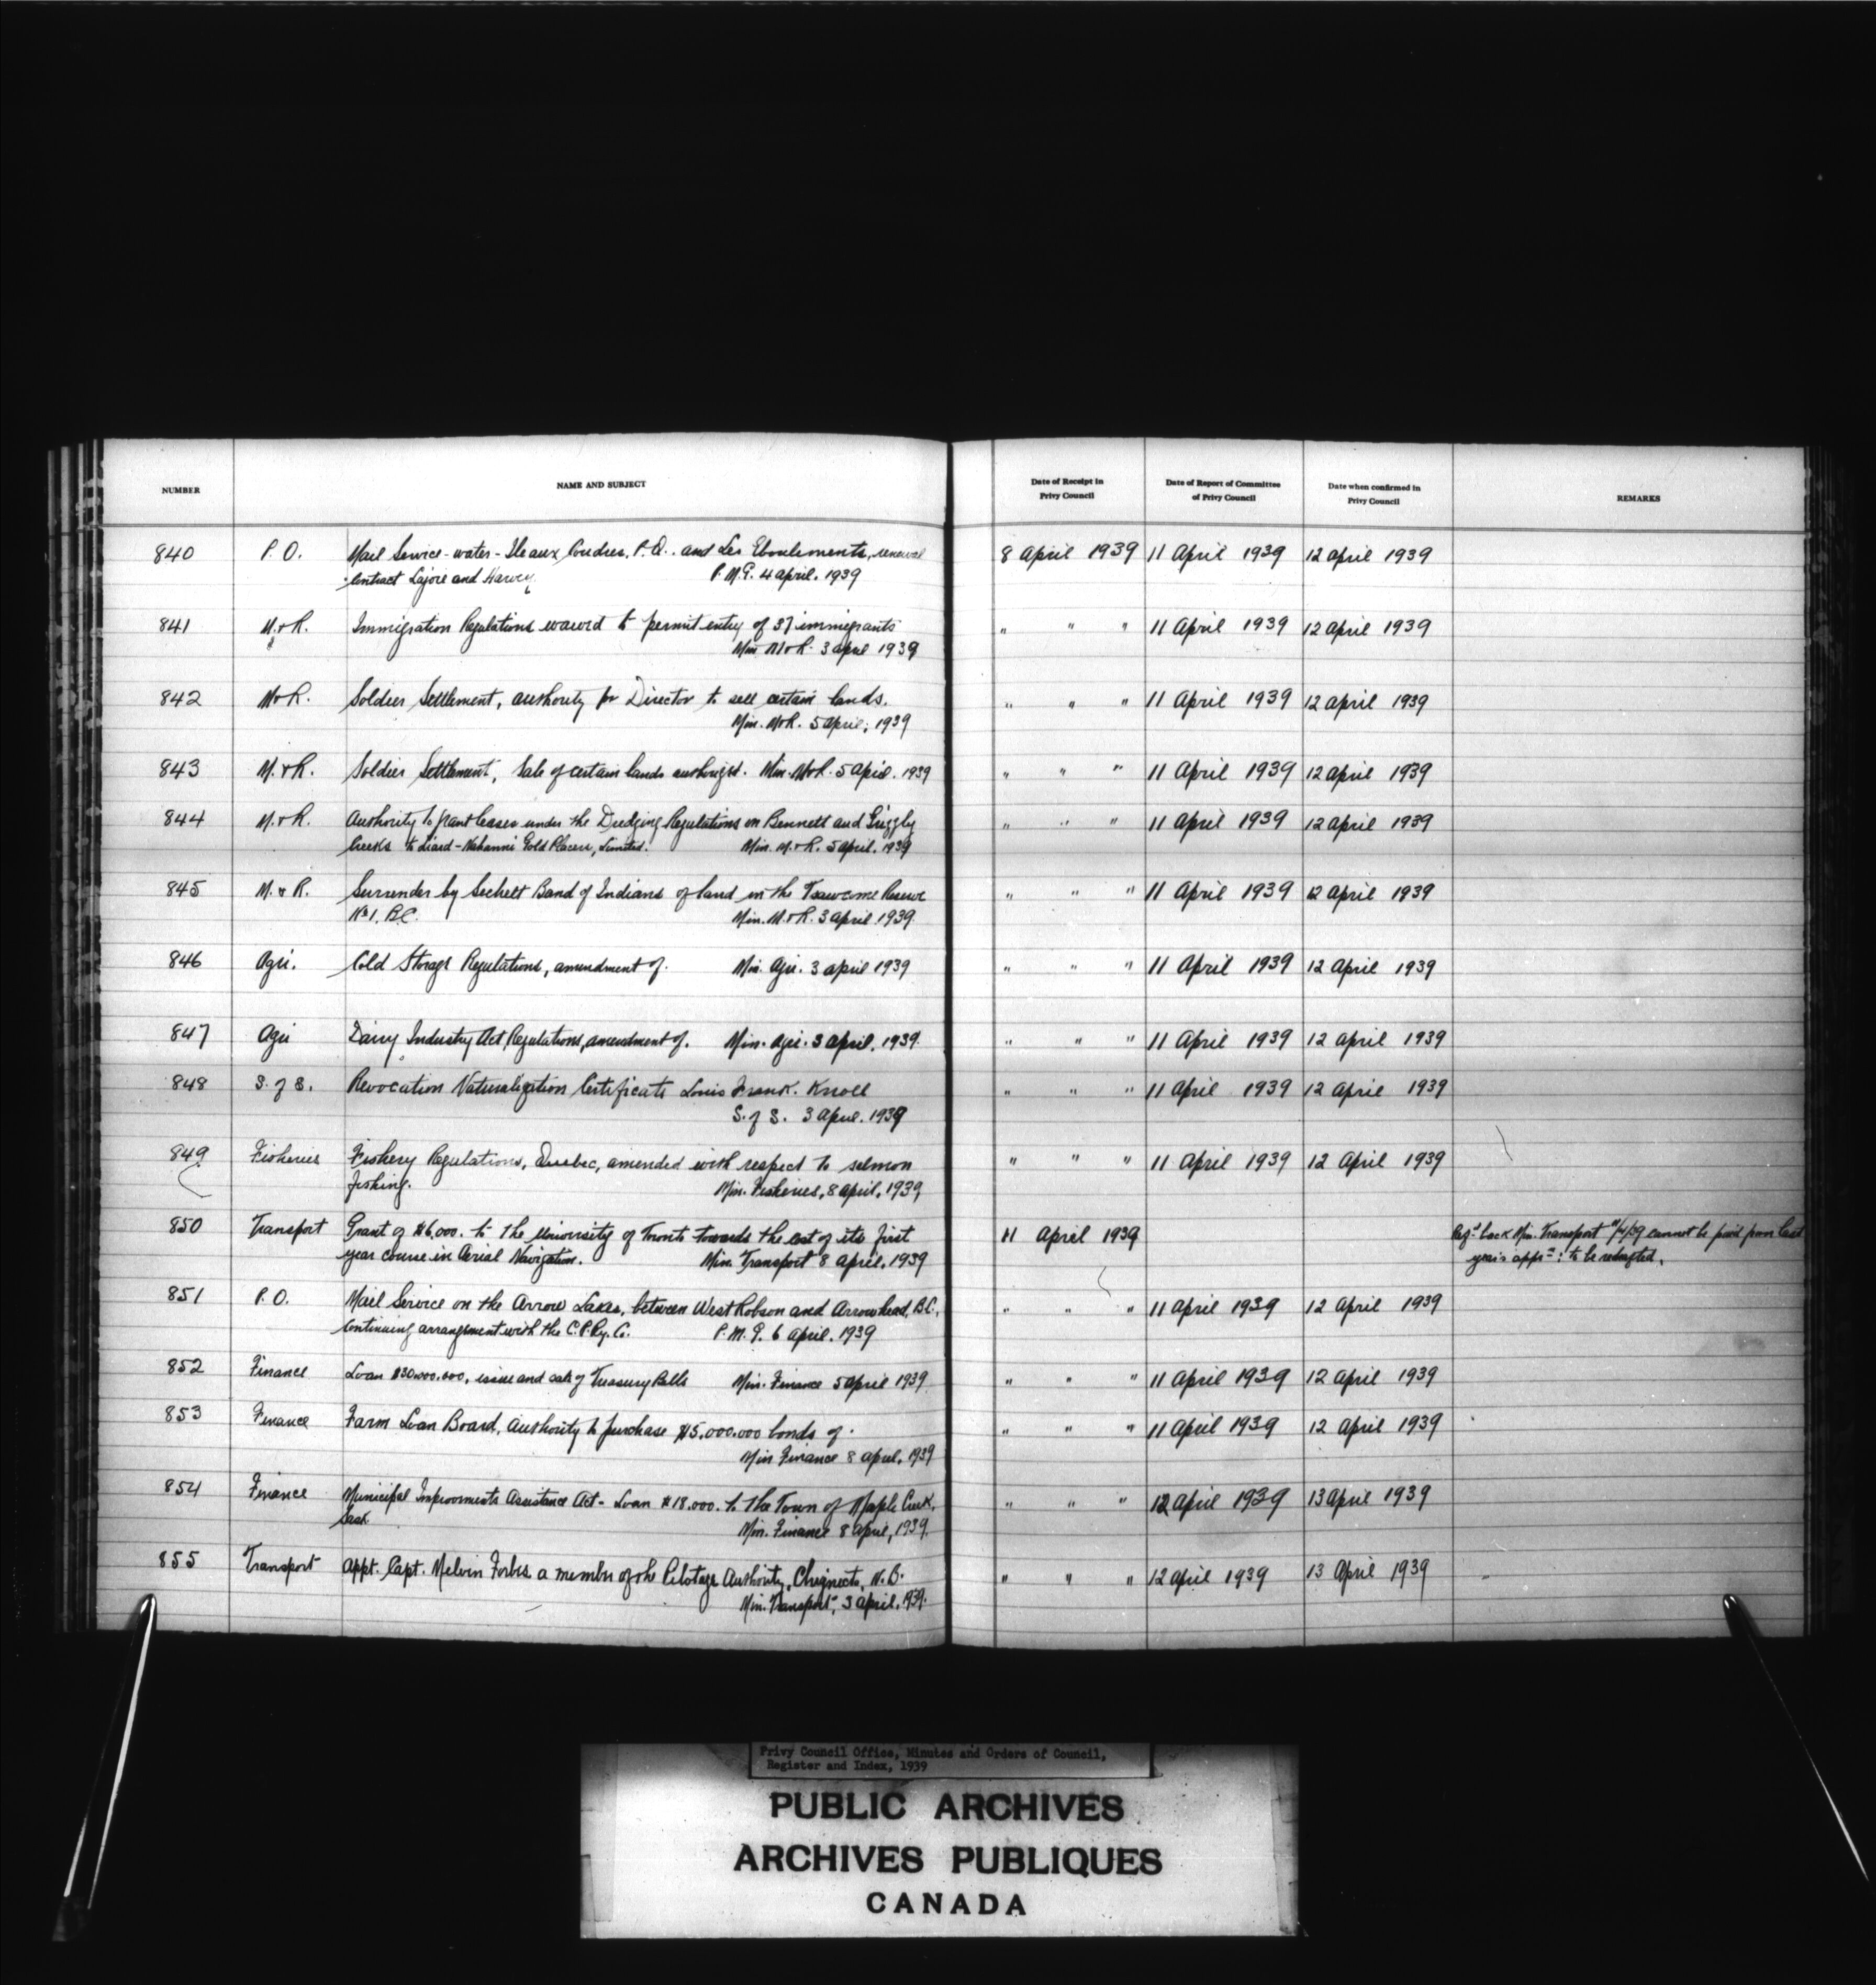 NUMBER
NAME AND SUBJECT
Date of Receipt in
Privy Council
Date of Report of Committee
of Privy Council
Date when confirmed in
Privy Council
REMARKS
840 P. O. Mail Service - water - Ile aux Coudres, P.Q. and Les Eboulements, renewal 8 April 1939 11 April 1939 12 April 1939
contract Lajoie and Harvey P.M.G. 4 April. 1939
841 M. & R. Immigration Regulations waived to permit entry of 37 immigrants " " " 11 April 1939 12 April 1939
Min. M & R. 3 April 1939
842 M & R. Soldier Settlement, authority for Director to sell certain lands. " " " 11 April 1939 12 April 1939
Min. M & R. 5 April, 1939
843 M. & R. Soldier Settlement, Sale of certain lands authorized. Min. M & R. 5 April. 1939 " " " 11 April 1939 12 April 1939
844 M. & R. Authority to grant leases under the Dredging Regulations on Bennett and Grizzly " " " 11 April 1939 12 April 1939
Creeks to Liard - Nahanni Gold Placers, Limited. Min. M. & R. 5 April. 1939
845 M. & R. Surrender by Sechelt Band of Indians of land in the Tsawcome Reserve " " " 11 April 1939 12 April 1939
No 1. B.C. Min. M. & R. 3 April 1939
846 Agri. Cold Storage Regulations, amendment of. Min. Agri. 3 April 1939 " " " 11 April 1939 12 April 1939
847 Agri Dairy Industry Act, Regulations, amendment of. Min. Agri. 3 April. 1939 " " " 11 April 1939 12 April 1939
848 S. of S. Revocation Naturalization Certificate Louis Frank Knoll " " " 11 April 1939 12 April 1939
S. of S. 3 April. 1939
849 Fisheries Fishery Regulations, Quebec, amended with respect to salmon " " " 11 April 1939 12 April 1939
fishing. Min. Fisheries, 8 April, 1939
850 Transport Grant of $6,000. to the University of Toronto towards the cost of its first 11 April 1939 back Min. Transport cannot be paid from last
year course in Aerial Navigation. Min. Transport 8 April, 1939 year's appn: to be redrafted.
851 P. O. Mail Service on the Arrow Lakes, between West Robson and Arrowhead, B.C. " " " 11 April 1939 12 April 1939
continuing arrangement with the C.P.Ry. Co. P.M.G. 6 April. 1939
852 Finance Loan $30,000,000, issue and sale of Treasury Bills Min. Finance 5 April 1939 " " " 11 April 1939 12 April 1939
853 Finance Farm Loan Board, Authority to purchase $5,000,000 bonds of. " " " 11 April 1939 12 April 1939
Min Finance 8 April, 1939
854 Finance Municipal Improvements Assistance Act - Loan $18,000. to the Town of Maple Creek, " " " 12 April 1939 13 April 1939
Sask. Min. Finance 8 April, 1939.
855 Transport Appt. Capt. Melvin Forbes a member of the Pilotage Authority, Chignecto, N.B. " " " 12 April 1939 13 April 1939
Min. Transport, 3 April. 1939.
Privy Council Office, Minutes and Orders of Council,
Register and Index, 1939
PUBLIC ARCHIVES
ARCHIVES PUBLIQUES
CANADA